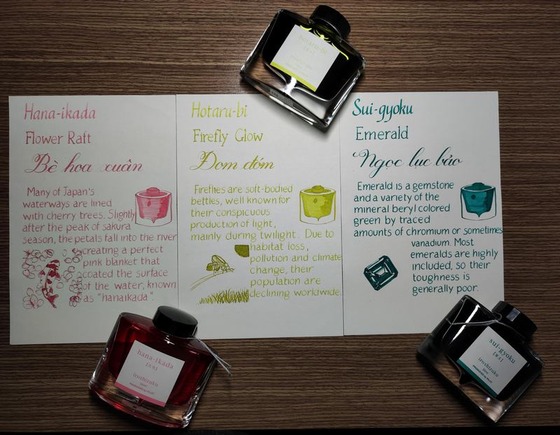 Hana-ikada
Flower Raft
Bè hoa xuân
Many of Japan's
waterways are lined
with cherry trees. Slightly
after the peak of sakura
season, the petals fall into the river
creating a perfect
pink blanket that
coated the surface
of the water, known
as "hanaikada".
Hotaru-bi
Firefly Glow
Đom đóm
Fireflies are soft-bodied
bettles, well known for
their conspicuous
production of light,
mainly during twilight. Due to
habitat loss,
pollution and climate
change, their
population are
declining worldwide.
Sui-gyoku
Emerald
Ngọc lục bảo
Emerald is a gemstone
and a variety of the
mineral beryl colored
green by traced
amounts of chromium or sometimes
vanadium. Most
emeralds are highly
included, so their
toughness is
generally poor.
hana-ikada
iroshizuku
sui-gyoku
iroshizuku